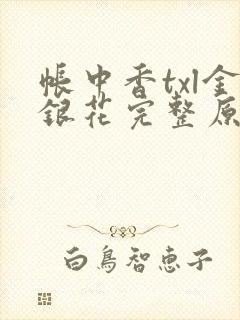 帳中香txl金
銀花完整原
白鳥智恵子